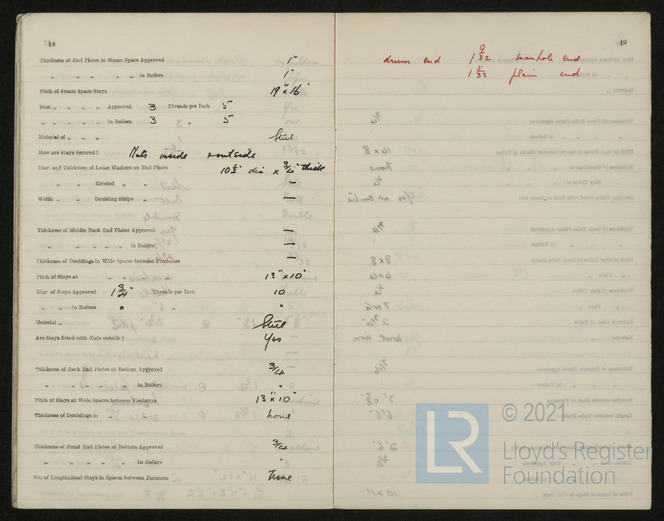 18
Thickness of End Plates in Steam Space Approved 1"
" " " " " in Boilers 1"
Pitch of Steam Space Stays 19" x 16"
Diar. " " " Approved 3 Threads per Inch 5
" " " " in Boilers 3 " 5
Material of " " " Steel
How are Stays Secured? Nuts inside & outside
Diar. and Thickness of Loose Washers on End Plates 10½ dia x ¾" thick
" " Riveted " " —
Width " " Doubling Strips " —
Thickness of Middle Back End Plates Approved —
" " " " " in Boilers —
Thickness of Doublings in Wide Spaces between Fireboxes —
Pitch of Stays at " " " " 13" x 10"
Diar. of Stays Approved 1¾" Threads per Inch 10
" " in Boilers " " "
Material " Steel
Are Stays fitted with Nuts outside? Yes
Thickness of Back End Plates at Bottom Approved ¾
" " " " " in Boilers "
Pitch of Stays at Wide Spaces between Fireboxes 13" x 10"
Thickness of Doublings in " " " none
Thickness of Front End Plates at Bottom Approved ¾
" " " " " in Boilers "
No. of Longitudinal Stays in Spaces between Furnaces
49
drum end 1 9/32 manhole end
plain end
© 2021
LR
Lloyd's Register
Foundation